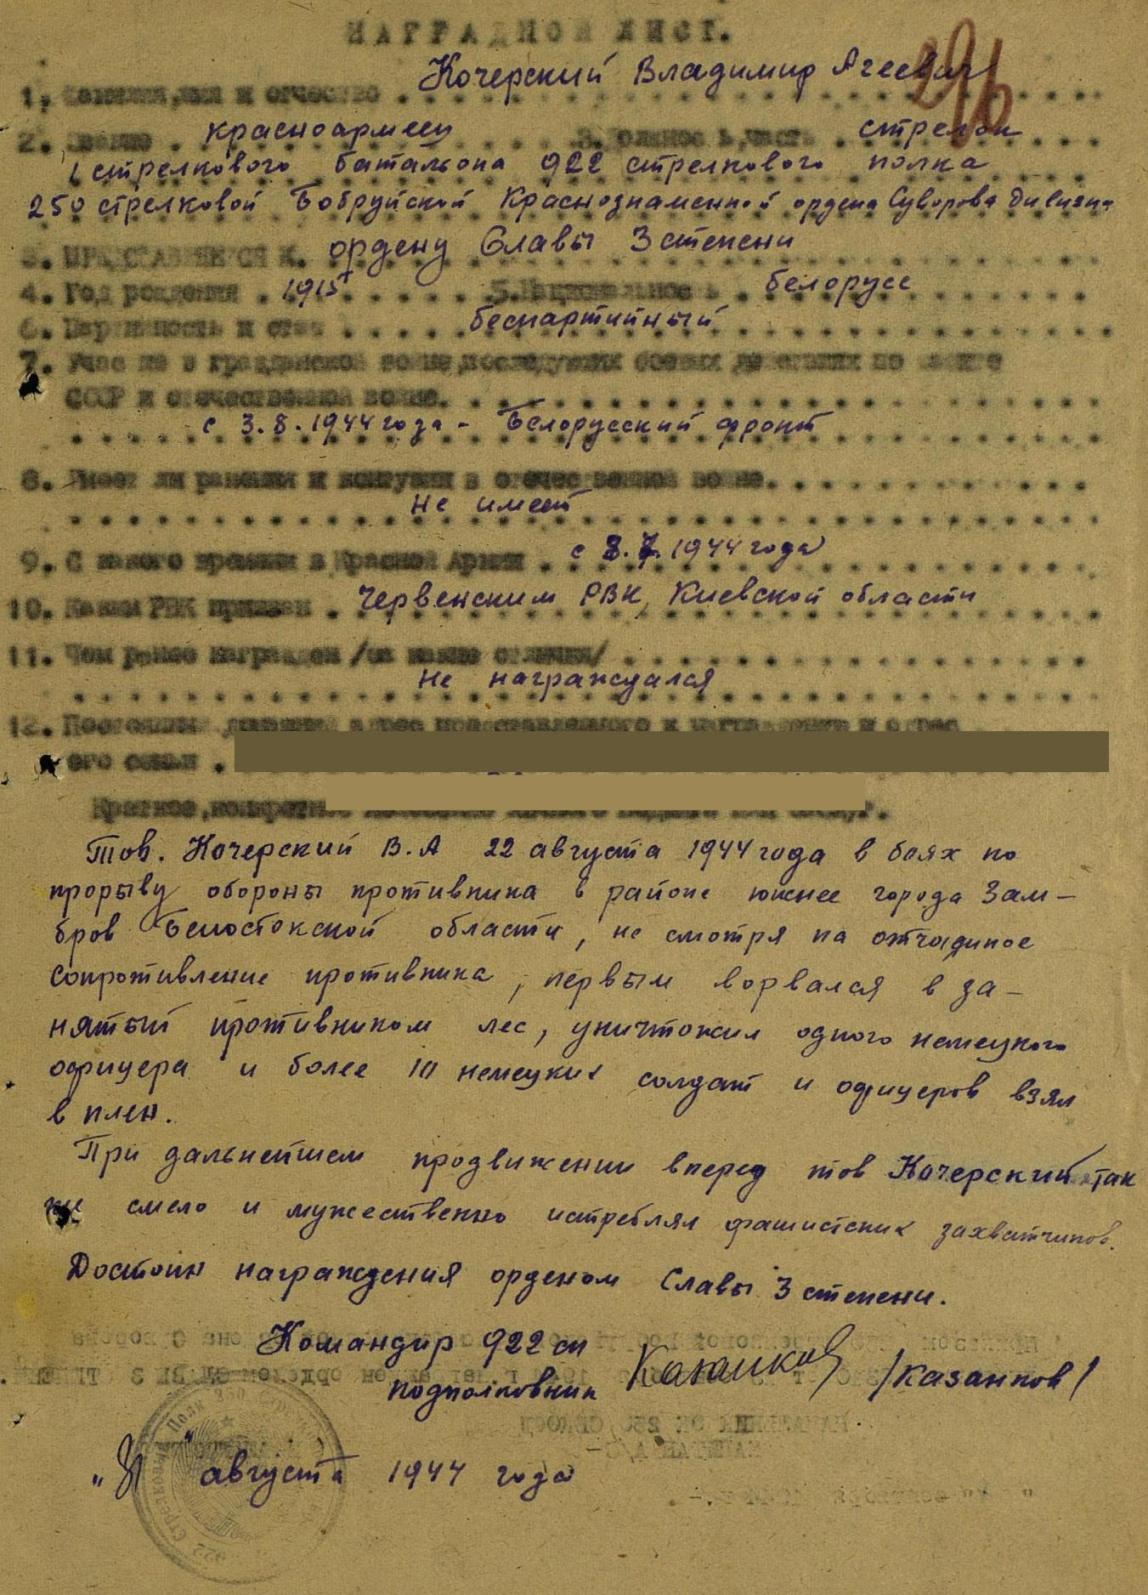 НАГРАДНОЙ ЛИСТ.
296
1. Фамилия, имя и отчество . Кочерский Владимир Агеевич
2. Звание . красноармеец 3. Должность, часть . стрелок
1 стрелкового батальона 922 стрелкового полка
250 стрелковой Бобруйской Краснознаменной ордена Суворова дивизии
3. ПРЕДСТАВЛЯЕТСЯ К. ордену Славы 3 степени
4. Год рождения . 1915 5. Национальность . белорусс
6. Партийность и стаж беспартийный
7. Участие в гражданской войне, последующих боевых действиях по защите
СССР и отечественной войне.
с 3.8.1944 года - Белорусский фронт
8. Имеет ли ранения и контузии в отечественной войне.
Не имеет
9. С какого времени в Красной Армии . с 8.7.1944 года
10. Каким РВК призван . Червенским РВК, Киевской области
11. Чем ранее награжден /за какие отличия/
Не награждался
12. Постоянный домашний адрес представляемого к награждению и адрес
его семьи .
Краткое, конкретное
Тов. Кочерский В.А 22 августа 1944 года в боях по
прорыву обороны противника в районе южнее города Зам-
бров Белостокской области, не смотря на отчаяное
сопротивление противника, первым ворвался в за-
нятый противником лес, уничтожил одного немецкого
офицера и более 10 немецких солдат и офицеров взял
в плен.
При дальнейшем продвижении вперед тов Кочерский так
же смело и мужественно истреблял фашистских захватчиков.
Достоин награждения орденом Славы 3 степени.
Командир 922 сп
подполковник /Казанков/
"31" августа 1944 года